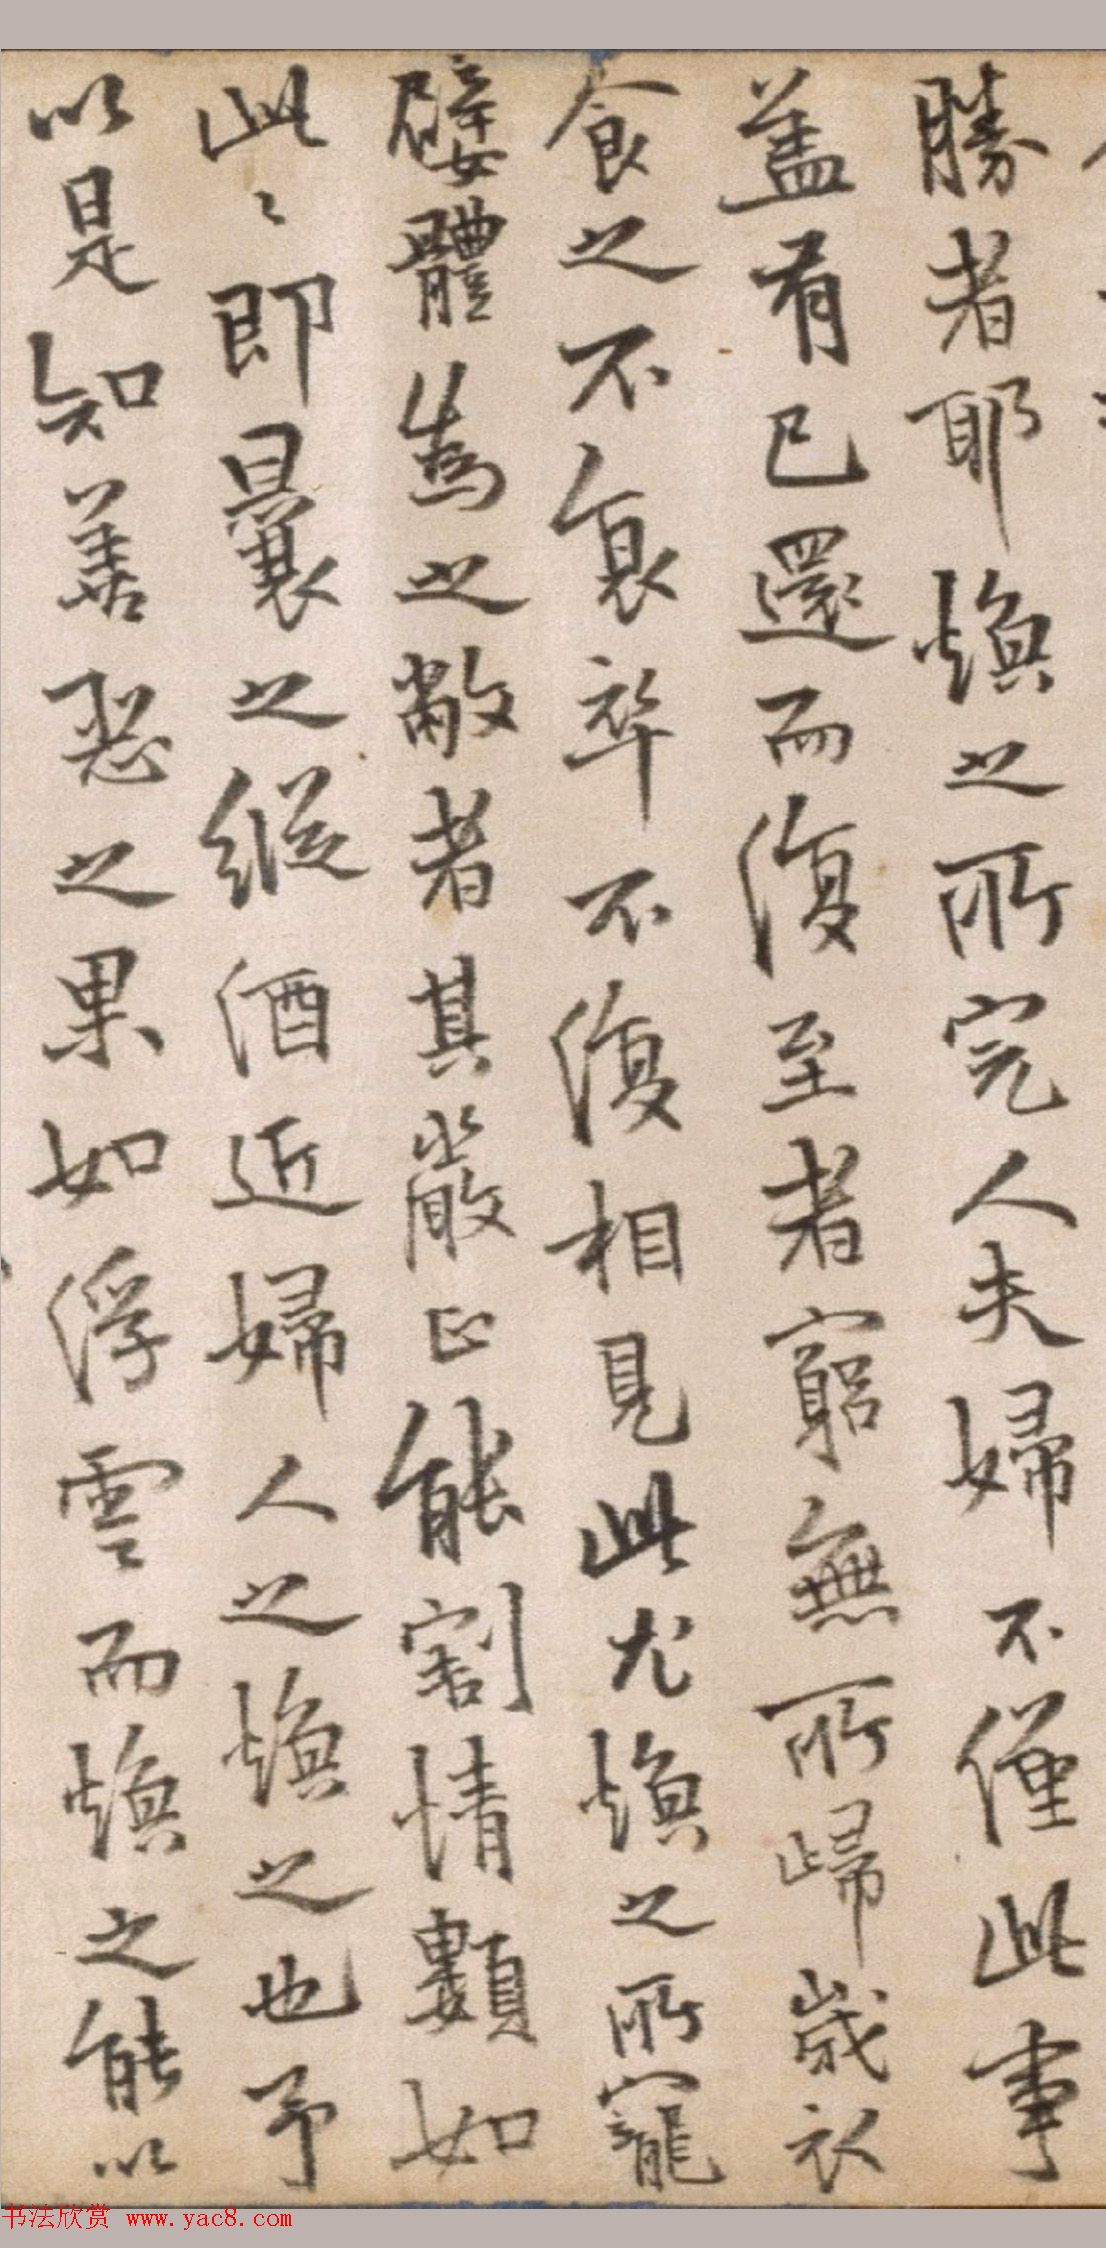 勝者耶煥之所完人夫婦不僅此事
蓋有已還而復至者窮無所歸歲衣
食之不衰卒不復相見此尤煥之所寵
嬖體為之敝者其嚴正能割情類如
此〻即曩之縱酒近婦人之煥之也予
以是知善惡之果如浮雲而煥之能以
书法欣赏 www.yac8.com